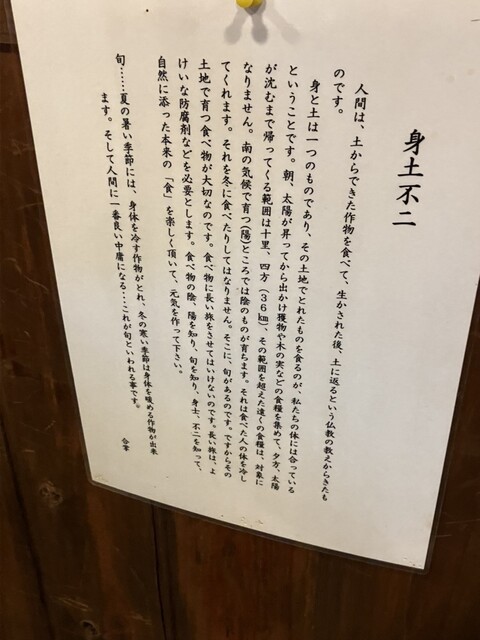 身土不二
人間は、土からできた作物を食べて、生かされた後、土に返るという仏教の教えからきたも
のです。
身と土は一つのものであり、その土地でとれたものを食るのが、私たちの体には合っている
ということです。朝、太陽が昇ってから出かけ獲物や木の実などの食糧を集めて、夕方、太陽
が沈むまで帰ってくる範囲は十里、四方（３６㎞）、その範囲を超えた遠くの食糧は、対象に
なりません。南の気候で育つ(陽)ところでは陰のものが育ちます。それは食べた人の体を冷し
てくれます。それを冬に食べたりしてはなりません。そこに、旬があるのです。ですからその
土地で育つ食べ物が大切なのです。食べ物に長い旅をさせてはいけないのです。長い旅は、よ
けいな防腐剤などを必要とします。食べ物の陰、陽を知り、旬を知り、身土、不二を知って、
自然に添った本来の「食」を楽しく頂いて、元気を作って下さい。
旬……夏の暑い季節には、身体を冷す作物がとれ、冬の寒い季節は身体を暖める作物が出来
ます。そして人間に一番良い中庸になる…これが旬といわれる事です。
合掌